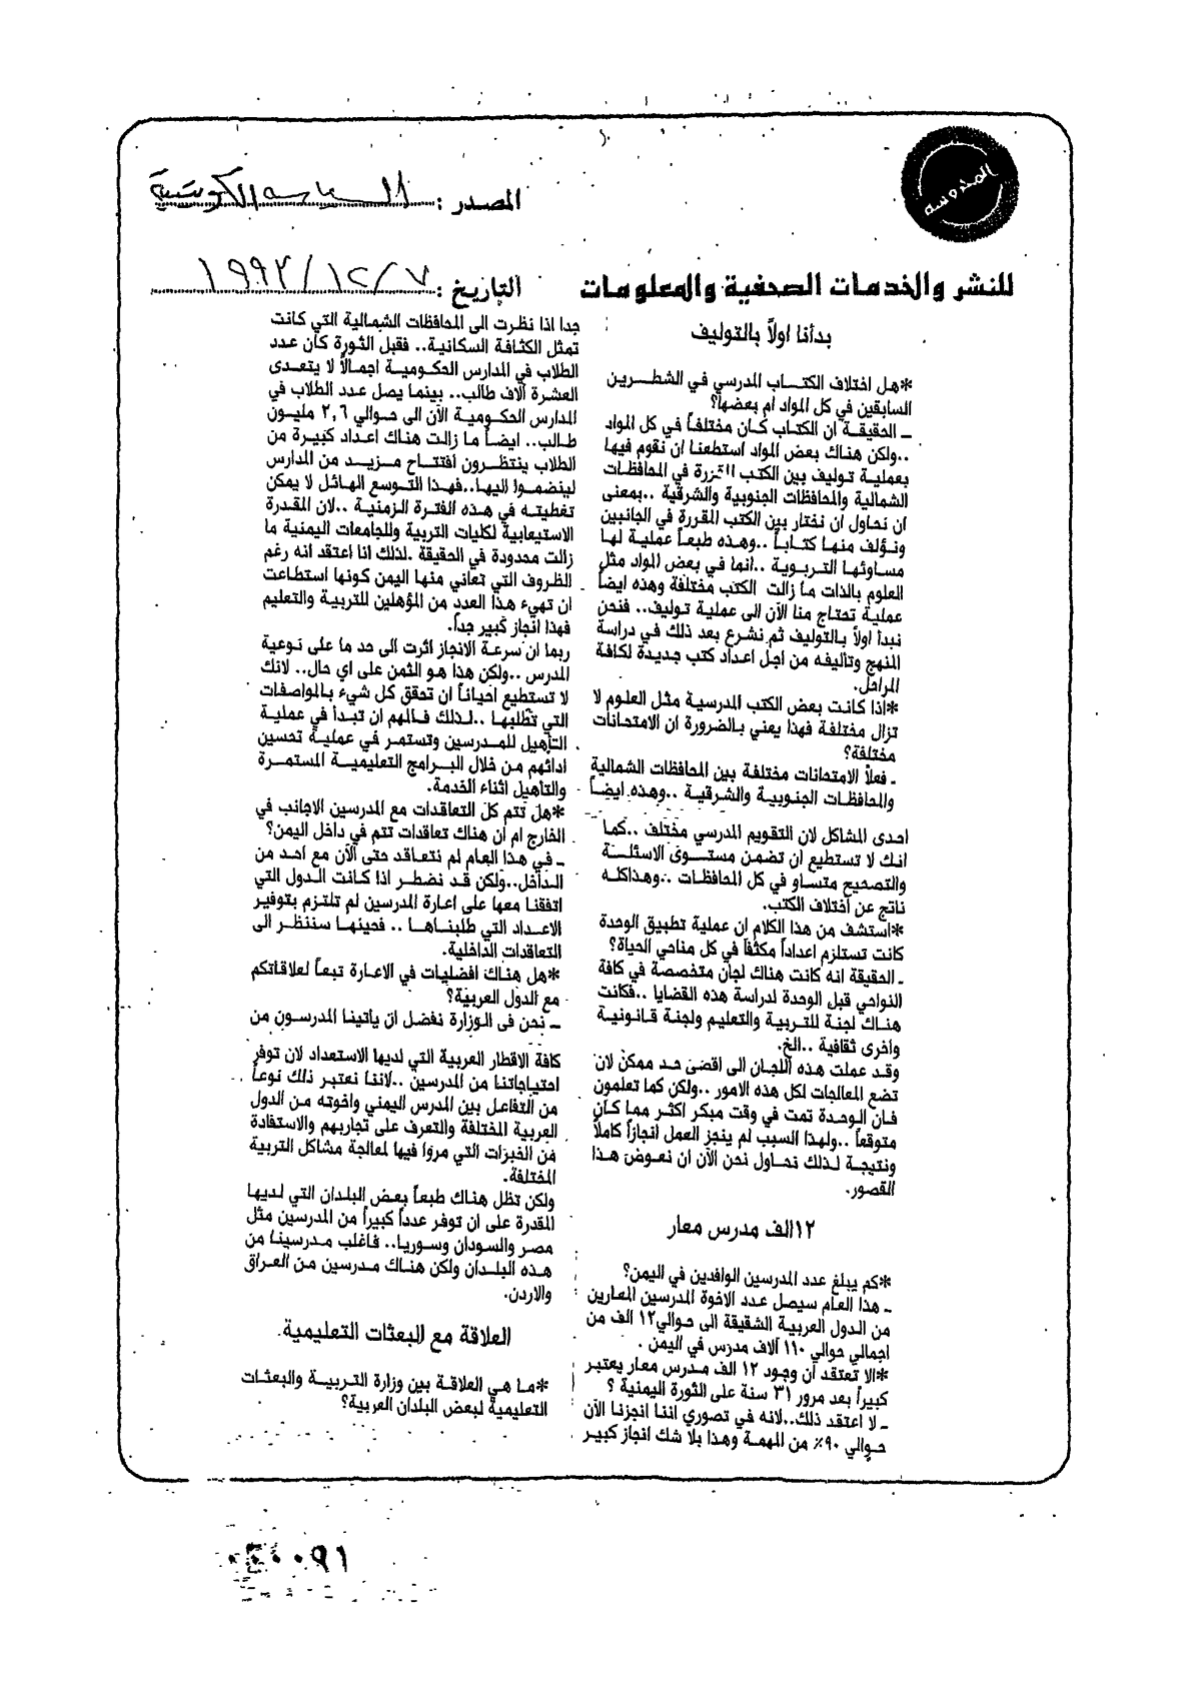 المحروسه
المصدر : السياسه الكويتية
للنشر والخدمات الصحفية والمعلومات
التاريخ : ٧/١٢/١٩٩٢
بدأنا اولاً بالتوليف
*هل اختلاف الكتـاب المدرسي في الشطـرين
السابقين في كل المواد ام بعضها؟
ـ الحقيقـة ان الكتاب كـان مختلفـاً في كل المواد
..ولكن هنـاك بعض المواد استطعنـا ان نقوم فيها
بعمليـة توليف بين الكتب المقررة في المحافظـات
الشمالية والمحافظات الجنوبية والشرقية ..بمعنى
ان نحاول ان نختار بين الكتب المقررة في الجانبين
ونـؤلف منهـا كتـابـاً ..وهـذه طبعـاً عمليـة لهـا
مسـاوئها التربـوية ..انما في بعض المواد مثل
العلوم بالذات مـا زالت الكتب مختلفة وهذه ايضاً
عمليـة تحتـاج منـا الآن الى عمليـة توليف.. فنحن
نبدأ اولاً بـالتوليف ثم نشرع بعد ذلك في دراسة
المنهج وتأليفه من اجل اعداد كتب جديدة لكافة
المراحل.
*اذا كانـت بعض الكتب المدرسية مثل العلوم لا
تزال مختلفة فهذا يعني بـالضرورة ان الامتحانات
مختلفة؟
ـ فعلاً الامتحانات مختلفة بين المحافظات الشمالية
والمحافظـات الجنوبيـة والشرقيـة ..وهـذه ايضـاً
احدى المشاكل لان التقويم المدرسي مختلف ..كما
انك لا تستطيع ان تضمن مستـوى الاسئلـة
والتصحيح متسـاو في كل المحافظـات ..وهذاكلـه
ناتج عن اختلاف الكتب.
*استشف من هذا الكلام ان عملية تطبيق الوحدة
كانت تستلزم اعداداً مكثفاً في كل مناحي الحياة؟
ـ الحقيقة انه كانت هناك لجان متخصصة في كافة
النواحي قبل الوحدة لدراسة هذه القضايا ..فكانت
هنـاك لجنة للتربيـة والتعليم ولجنة قـانونيـة
واخرى ثقافية ..الخ.
وقـد عملت هـذه اللجـان الى اقصى حـد ممكن لان
تضع المعالجات لكل هذه الامور ..ولكن كما تعلمون
فـان الوحـدة تمت في وقت مبكر اكثـر ممـا كـان
متوقعـاً ..ولهذا السبب لم ينجز العمل انجازاً كاملاً
ونتيجة لـذلك نحـاول نحن الآن ان نعـوض هـذا
القصور.
١٢الف مدرس معار
*كم يبلغ عدد المدرسين الوافدين في اليمن؟
ـ هذا العام سيصل عدد الاخوة المدرسين المعارين
من الدول العربية الشقيقة الى حوالي١٢ الف من
اجمالي حوالي ١١٠ آلاف مدرس في اليمن .
*الا تعتقد ان وجود ١٢ الف مـدرس معار يعتبر
كبيراً بعد مرور ٣١ سنة على الثورة اليمنية ؟
ـ لا اعتقد ذلك..لانه في تصوري اننا انجزنا الآن
حـوالي ٩٠٪ من المهمـة وهـذا بلا شك انجاز كبير
جدا اذا نظرت الى المحافظات الشمالية التي كانت
تمثل الكثافة السكانية.. فقبل الثورة كان عدد
الطلاب في المدارس الحكوميـة اجمـالاً لا يتعـدى
العشرة آلاف طالب.. بينما يصل عدد الطلاب في
المدارس الحكـوميـة الآن الى حـوالي ٢,٦ مليـون
طـالب.. ايضـاً مـا زالت هنـاك اعـداد كبيرة من
الطلاب ينتظـرون افتتـاح مـزيـد من المدارس
لينضمـوا اليهـا ..فهـذا التـوسع الهـائل لا يمكن
تغطيتـه في هـذه الفترة الزمنيـة ..لان المقـدرة
الاستيعابية لكليات التربية وللجامعات اليمنية ما
زالت محدودة في الحقيقة .لذلك انا اعتقد انه رغم
الظروف التي تعاني منها اليمن كونها استطاعت
ان تهيء هـذا العدد من المؤهلين للتربيـة والتعليم
فهذا انجاز كبير جداً.
ربما ان سرعـة الانجاز اثرت الى حد ما على نوعية
المدرس ..ولكن هذا هو الثمن على اي حال.. لانك
لا تستطيع احيانـاً ان تحقق كل شيء بـالمواصفات
التي تطلبهـا ..لـذلك فـالمهم ان تبـدأ في عمليـة
التأهيل للمـدرسين وتستمـر في عمليـة تحسين
ادائهم من خلال البـرامج التعليميـة المستمـرة
والتأهيل اثناء الخدمة.
*هل تتم كل التعاقدات مع المدرسين الاجانب في
الخارج ام ان هناك تعاقدات تتم في داخل اليمن؟
ـ في هذا العام لم نتعـاقد حتى الآن مع احـد من
الـداخل..ولكن قـد نضطـر اذا كـانت الـدول التي
اتفقنـا معها على اعارة المدرسين لم تلتـزم بتوفير
الاعـداد التي طلبنـاهـا .. فحينهـا سننظـر الى
التعاقدات الداخلية.
*هل هنـاك افضليات في الاعـارة تبعـاً لعلاقـاتكم
مع الدول العربية؟
ـ نحن فى الـوزارة نفضل ان يأتينا المدرسـون من
كافة الاقطار العربية التي لديها الاستعداد لان توفر
احتيـاجاتنـا من المدرسين ..لاننـا نعتبر ذلك نوعـاً
من التفاعل بين المدرس اليمني واخوته مـن الدول
العربية المختلفة والتعرف على تجاربهم والاستفادة
من الخبرات التي مروا فيها لمعالجة مشاكل التربية
المختلفة.
ولكن تظل هنـاك طبعـاً بعـض البلـدان التي لـديهـا
المقدرة على ان توفر عدداً كبيراً من المدرسين مثل
مصر والسـودان وسـوريـا.. فـاغلب مـدرسينـا من
هـذه البلـدان ولكن هنـاك مـدرسين من العـراق
والاردن.
العلاقة مع البعثات التعليمية
*مـا هي العلاقـة بين وزارة التربيـة والبعثـات
التعليمية لبعض البلدان العربية؟